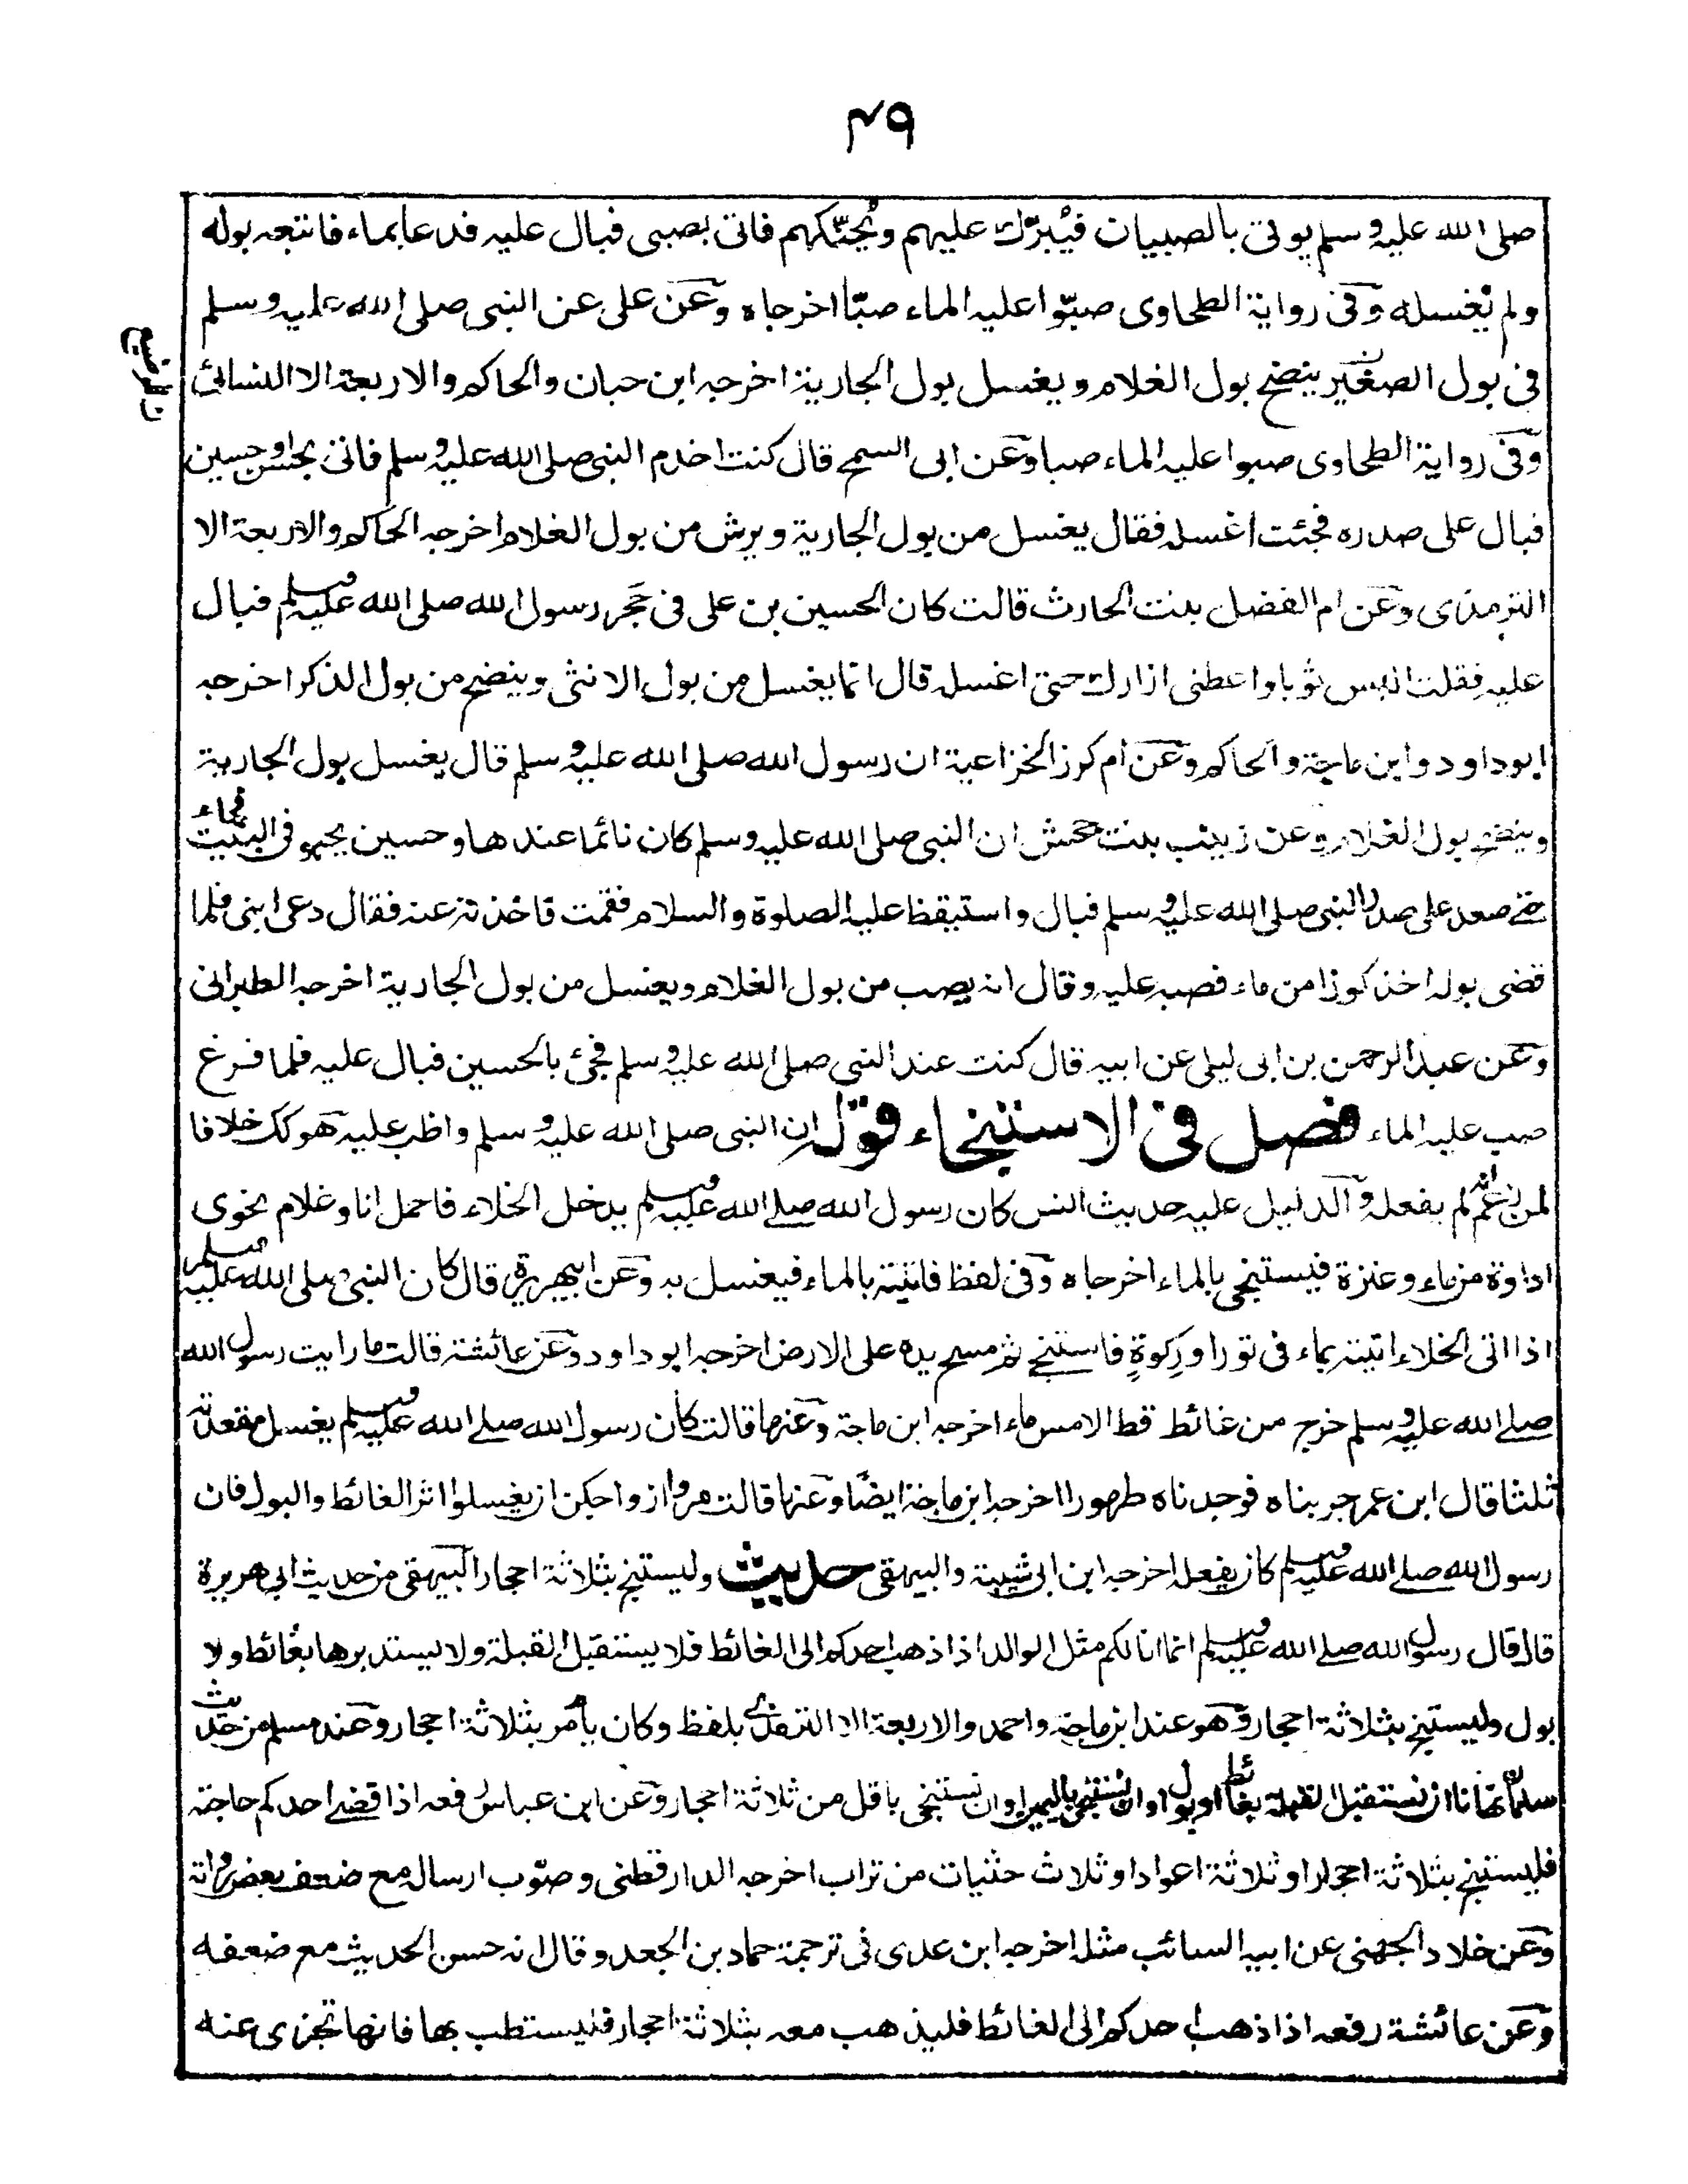 ٤٩
صلى الله عليه وسلم يوتى بالصبيان فيُبرّك عليهم ويُحنّكهم فاتى بصبى فبال عليه فدعا بماء فاتبعه بوله
ولم يُغسله وفى رواية الطحاوى صبّوا عليه الماء صبّا اخرجاه وعن على عن النبى صلى الله عليه وسلم
فى بول الصغير ينضح بول الغلام ويغسل بول الجارية اخرجه ابن حبان والحاكم والاربعة الا النسائى
ن الرضيع
وفى رواية الطحاوى صبوا عليه الماء صبا وعن ابى السمح قال كنت اخدم النبى صلى الله عليه وسلم فاتى بحسن او حسين
فبال على صدره فجئت اغسله فقال يغسل من بول الجارية ويرش من بول الغلام اخرجه الحاكم والاربعة الا
الترمذى وعن ام الفضل بنت الحارث قالت كان الحسين بن على فى حَجر رسول الله صلى الله عليه وسلم فبال
عليه فقلت البس ثوبا واعطنى ازارك حتى اغسله قال انما يغسل من بول الانثى وينضح من بول الذكر اخرجه
ابوداود وابن ماجة والحاكم وعن ام كرز الخزاعية ان رسول الله صلى الله عليه وسلم قال يغسل بول الجارية
وينضح بول الغلام وعن زينب بنت جحش ان النبى صلى الله عليه وسلم كان نائما عندها وحسين يحبو فى البيت فجاء
حتے صعد على صدر النبى صلى الله عليه وسلم فبال واستيقظ عليه الصلوة والسلام فقمت فاخذته عنه فقال دعى ابنى فلما
قضى بوله اخذ كوزا من ماء فصبه عليه وقال انه يصب من بول الغلام ويغسل من بول الجارية اخرجه الطبرانى
وعن عبد الرحمن بن ابى ليلى عن ابيه قال كنت عند النبى صلى الله عليه وسلم فجئ بالحسين فبال عليه فلما فرغ
صب عليه الماء فصل فى الاستنجاء قوله ان النبى صلى الله عليه وسلم واظب عليه هو كك خلافا
لمن زعم انه لم يفعله والدليل عليه حديث انس كان رسول الله صلے الله عليه وسلم يدخل الخلاء فاحمل انا وغلام نحوى
اداوة من ماء وعنزة فيستنجى بالماء اخرجاه وفى لفظ فاتيته بالماء فيغسل به وعن ابيهريرة قال كان النبى صلى الله عليه وسلم
اذا اتى الخلاء اتيته بماء فى تور او رِكوةٍ فاستنجے ثم مسح يده على الارض اخرجه ابوداود وعن عائشة قالت ما رايت رسول الله
صلے الله عليه وسلم خرج من غائط قط الا مس ماء اخرجه ابن ماجة وعنها قالت كان رسول الله صلے الله عليه وسلم يغسل مقعدته
ثلثا قال ابن عمر جربناه فوجدناه طهورا اخرجه ابن ماجة ايضًا وعنها قالت مروا ازواجكن ان يغسلوا اثر الغائط والبول فان
رسول الله صلے الله عليه وسلم كان يفعله اخرجه ابن ابى شيبة والبيهقى حديث وليستنج بثلاثة احجار البيهقى من حديث ابى هريرة
قال قال رسول الله صلے الله عليه وسلم انما انا لكم مثل الوالد اذا ذهب احدكم الى الغائط فلا يستقبل القبلة ولا يستدبرها بغائط ولا
بول وليستنج بثلاثة احجار وهو عند ابن ماجة واحمد والاربعة الا الترمذے بلفظ وكان يامر بثلاثة احجار وعند مسلم من حديث
سلمان نهانا ان نستقبل القبلة بغائط او بول او ان نستنجى باليمين او ان نستنجى باقل من ثلاثة احجار وعن ابن عباس رفعه اذا قضے احدكم حاجته
فليستنج بثلاثة احجار او ثلاثة اعواد او ثلاث حثيات من تراب اخرجه الدارقطنى وصوّب ارساله مع ضعف بعض رواته
وعن خلاد الجهنى عن ابيه السائب مثله اخرجه ابن عدى فى ترجمة حماد بن الجعد وقال انه حسن الحديث مع ضعفه
وعن عائشة رفعه اذا ذهب احدكم الى الغائط فليذهب معه بثلاثة احجار فليستطب بها فانها تجزى عنه